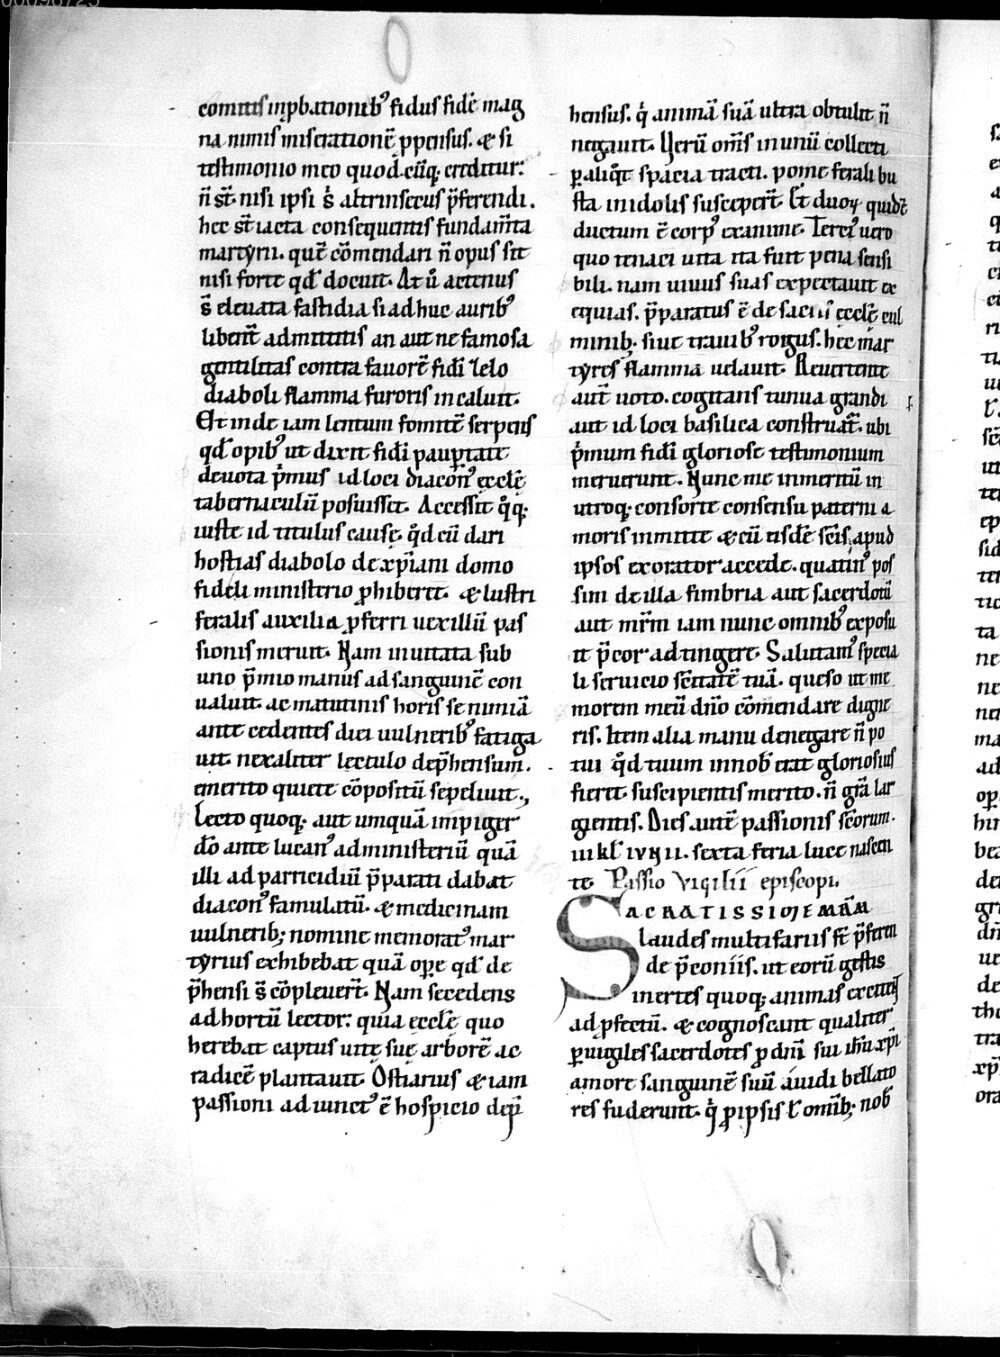 comitis inpbationibꝰ fidus fidē mag
na nimis miseratione ꝓpensus. & si
testimonio meo quod cūq; creditur:
n̄ st̄ nisi ipsi s; altrinsecus p̄ferendi.
hec st̄ iacta consequentis fundam̄ta
martyrii. que c̄omendari n̄ opus sit
nisi forte qd̄ docuit. At ū actenus
s̄ eleuata fastidia si adhuc auribꝰ
libent̄ admittitis an aut ne famosa
gentilitas contra fauorē fidi zelo
diaboli flamma furoris incaluit.
Et inde iam lentum fomitē serpens
qd̄ opibꝰ ut dixit fidi paup̄tate
deuota p̄mus id loci diaconꝰ ęcclę
tabernaculū posuisset. Accessit qq;
iuste id titulus causę. qd cū dari
hostias diabolo de xp̄iani domo
fideli ministerio ꝓhiberet. & lustri
feralis auxilia ꝓferri uexillū pas
sionis meruit. Nam inuitata sub
uno p̄mio manus ad sanguinē con
ualuit. ac matutinis horis se nimiā
ante cedentes diei uulneribꝰ fatiga
uit. nexaliter lectulo dep̄hensum.
emerito quiete cōpositū sepeliuit.,
Lecto quoq; aut umquā impiger
dō ante lucanꝰ administeriū quā
illi ad parricidiū p̄parati dabat
diaconꝰ famulatū. & medicinam
uulnerib; nomine memoratꝰ mar
tyrius exhibebat quā ope qd̄ de
p̄hensi s̄ cōpleuert̄. Nam secedens
ad hortū lector: quia ęcclę quo
herebat captus uitę suę arborē ac
radicē plantauit. Ostiarius & iam
passioni ad iunctꝰ ē hospicio dep̄
hensus. q animā suā ultra obtulit n̄
negauit. Uerū om̄s in unū collecti
ꝑ aliqt spacia tracti. pome ferali bu
sta in idolis suscepert̄. Et duoꝝ quidē
ductum ē corpꝰ exanime. Terciꝰ uero
quo tenaci uita ita fuit pena sensi
bili. nam uiuus suas expectauit ex
equias. p̄paratus ē de sacris ęcclę cul
minib; siue trauibꝰ rogus. hec mar
tyres flamma uelauit. Reuertente
aut̄ uoto. cogitans tunua grandi
aut id loci basilica construat̄. ubi
p̄mum fidi gloriose testimonium
meruerunt. Nunc me inmeritū in
utroq; consorte consensu paterni a
moris inmitte & cū eisdē scīs apud
ipsos exorator accede. quatinꝰ pos
sim de illa fimbria aut sacerdotū
aut mr̄m iam nunc omnibꝰ exposu
it p̄cor adtingere. Salutamꝰ specia
li seruicio scītatē tuā. queso ut me
morem meū dn̄o cōmendare digne
ris. Item alia manu denegare n̄ po
tui qd tuum in nobꝰ erat gloriosius
fieret suscipientis merito. n̄ gr̄a lar
gientis. Dies autē passionis scōrum.
iiii kl̄ iunii. sexta feria luce nascen
te Passio Vigilii episcopi.
SACRATISSIME MR̄M
laudes multifariis st̄ p̄feren
de p̄coniis. ut eorū gestis
inertes quoq; animas excitē
ad ꝓfectū. & cognoscant qualiter
ꝑuigiles sacerdotes ꝓ dn̄i sui ihū xp̄i
amore sanguinē suū auidi bellato
res fuderunt. q ꝓ ipsis ł omīb; nob̄